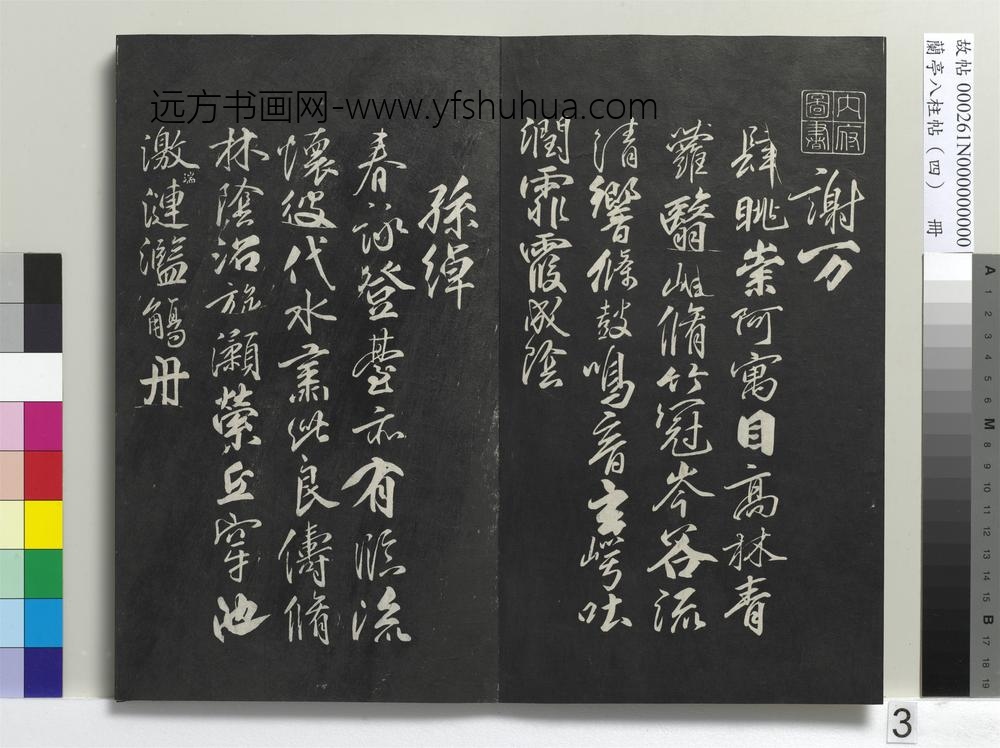 远方书画网-www.yfshuhua.com
故帖 000261N000000000
蘭亭八柱帖（四） 冊
内府圖書
謝万
肆眺崇阿寓目高林青
蘿翳岫脩竹冠岑谷流
清響條鼓鳴音玄崿吐
潤霏霞成陰
孫綽
春詠登臺亦有臨流
懷彼代水肅此良儔脩
林陰沼旋瀨縈丘穿池
激湍漣濫觴舟
3
A 1 2 3 4 5 6 M 8 9 10 11 12 13 14 15 B 17 18 19